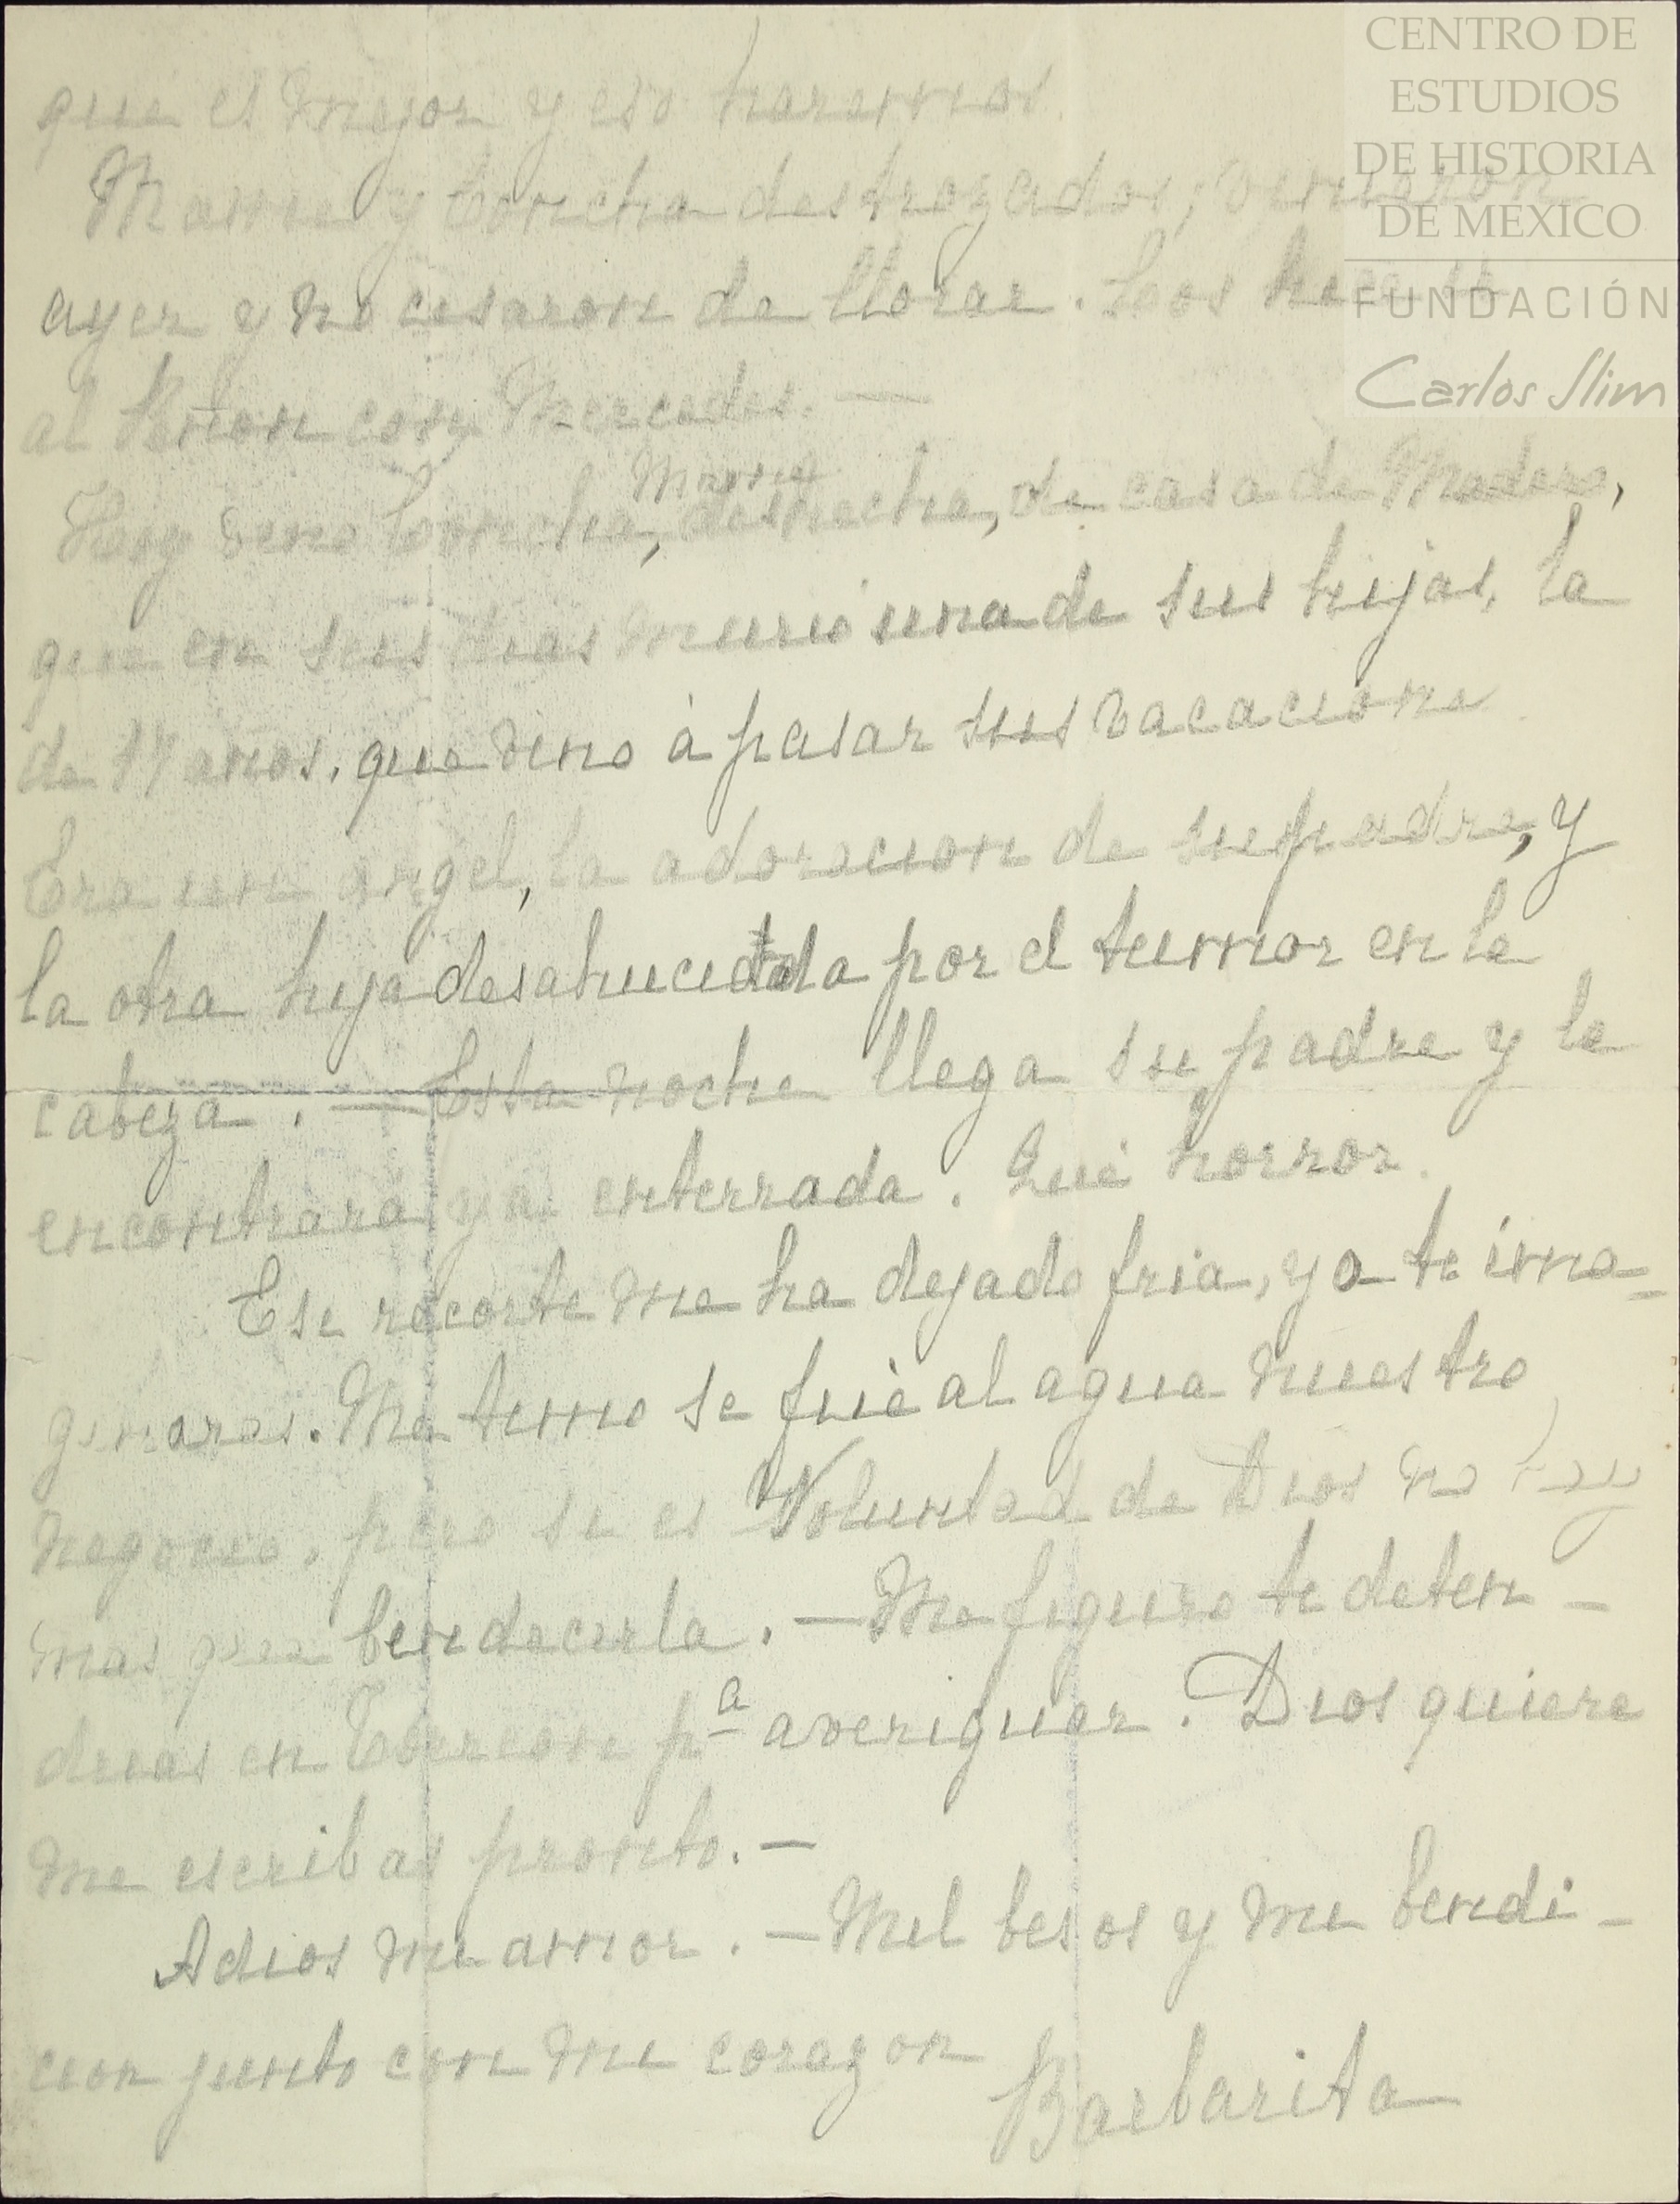 CENTRO DE
ESTUDIOS
DE HISTORIA
DE MEXICO
FUNDACIÓN
Carlos Slim
que es mejor y eso haremos.
Mame y Concha destrozados; vinieron
ayer y no cesaron de llorar. Los
al Peñon con Mercedes. —
Maria
Hoy vino Concha, deshecha, de casa de Madero,
que en seis dias murió una de sus hijas, la
de 17 años, que vino á pasar sus vacacione
Era un angel, la adoracion de su padre, y
la otra hija desahuciada por el tumor en la
cabeza. — Esta noche llega su padre y la
encontrará ya enterrada. Qué horror.
Ese recorte me ha dejado fria, ya te ima-
ginaras. Me temo se fué al agua nuestro
negocio, pero si es Voluntad de Dios no hay
mas que bendecirla. — Me figuro te deten-
drias en Torreon pª averiguar. Dios quiera
me escribas pronto. —
Adios mi amor. — Mil besos y mi bendi-
cion junto con mi corazon
Barbarita